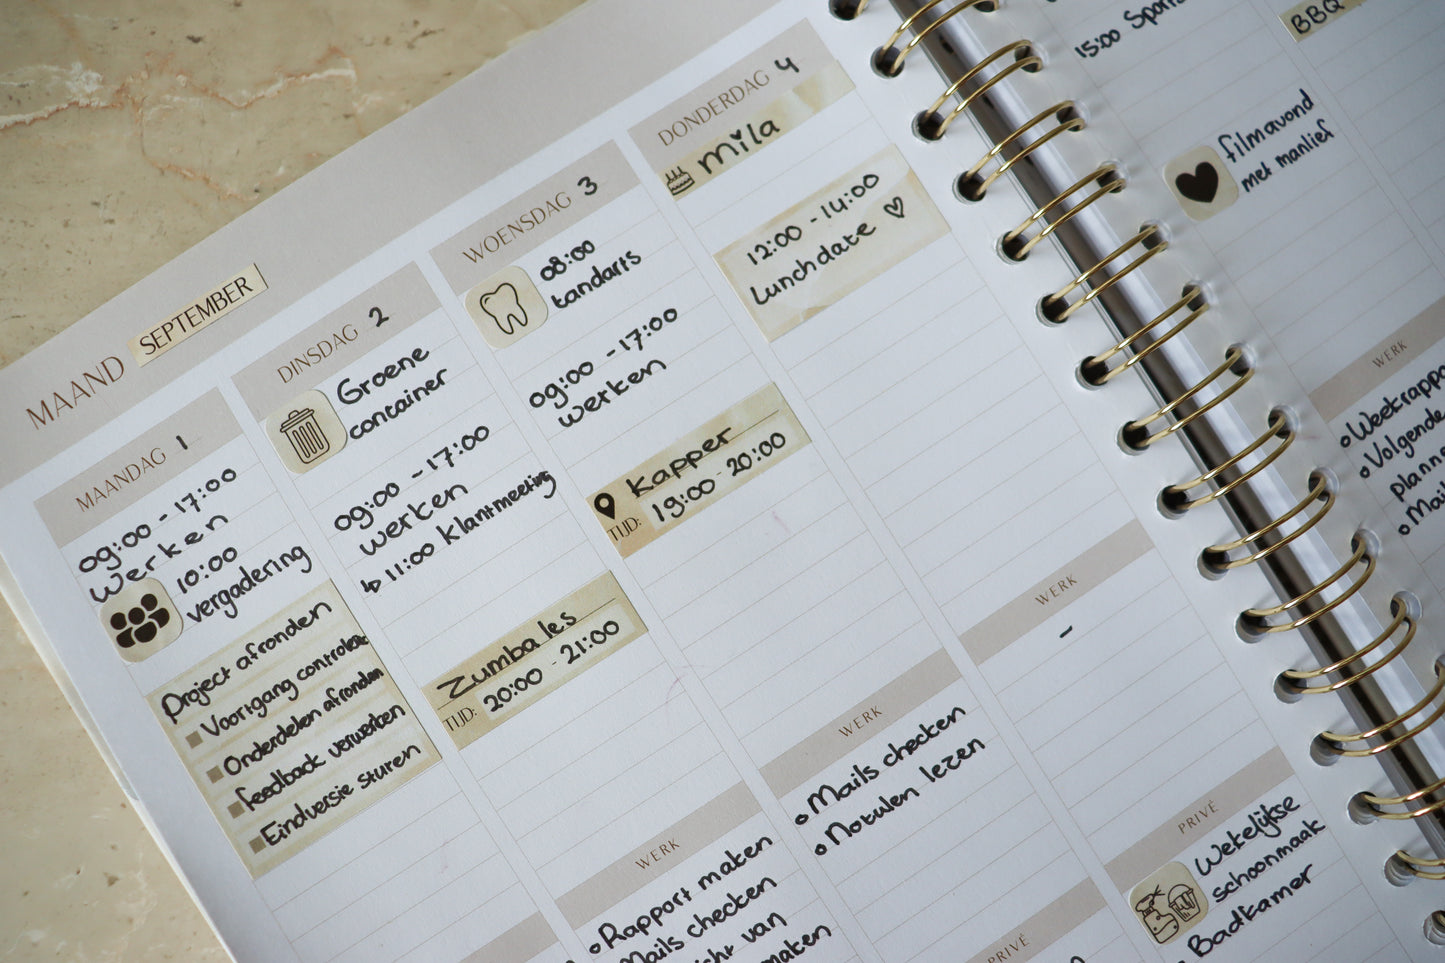 MAAND SEPTEMBER
MAANDAG 1
09:00 - 17:00
Werken
10:00
vergadering
Project afronden
Voortgang controle
Onderdelen afronden
feedback verwerken
Eindversie sturen
DINSDAG 2
Groene
container
09:00 - 17:00
werken
↳ 11:00 klantmeeting
Zumba les
TIJD: 20:00 - 21:00
WERK
Rapport maken
Mails checken
van
maken
WOENSDAG 3
08:00
tandarts
09:00 - 17:00
werken
Kapper
TIJD: 19:00 - 20:00
WERK
Mails checken
Notulen lezen
PRIVÉ
DONDERDAG 4
Mila
12:00 - 14:00
Lunchdate ♡
WERK
-
PRIVÉ
Wekelijkse
schoonmaak
Badkamer
15:00
filmavond
met manlief
WERK
Volgende
BBQ